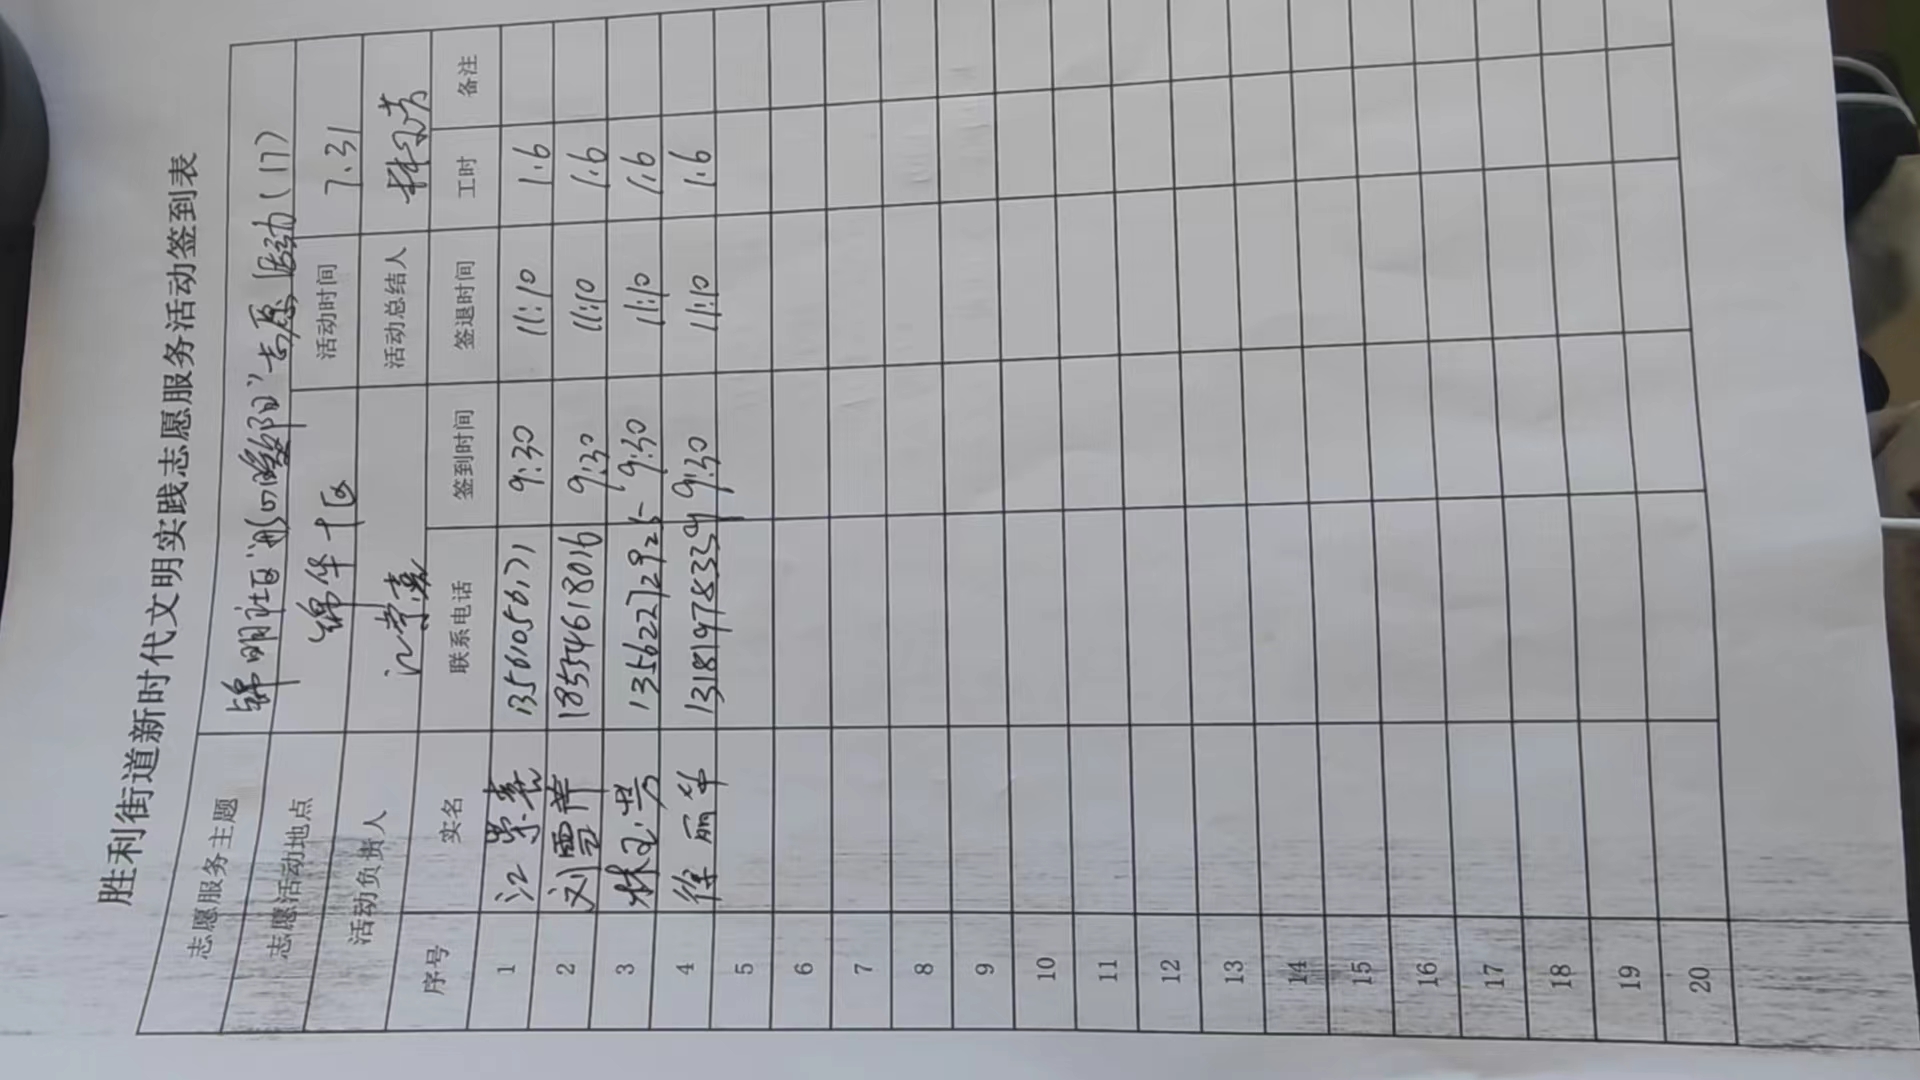 胜利街道新时代文明实践志愿服务活动签到表
志愿服务主题 锦明社区 志愿活动(17)
志愿活动地点 锦华十区 活动时间 7.31
活动负责人 江崇嘉 活动总结人 林玉芳
序号 实名 联系电话 签到时间 签退时间 工时 备注
1 江崇嘉 13561056171 9:30 11:10 1.6
2 刘雪萍 18554618016 9:30 11:10 1.6
3 林玉芳 13562272925 9:30 11:10 1.6
4 徐丽华 13181978339 9:30 11:10 1.6
5
6
7
8
9
10
11
12
13
14
15
16
17
18
19
20